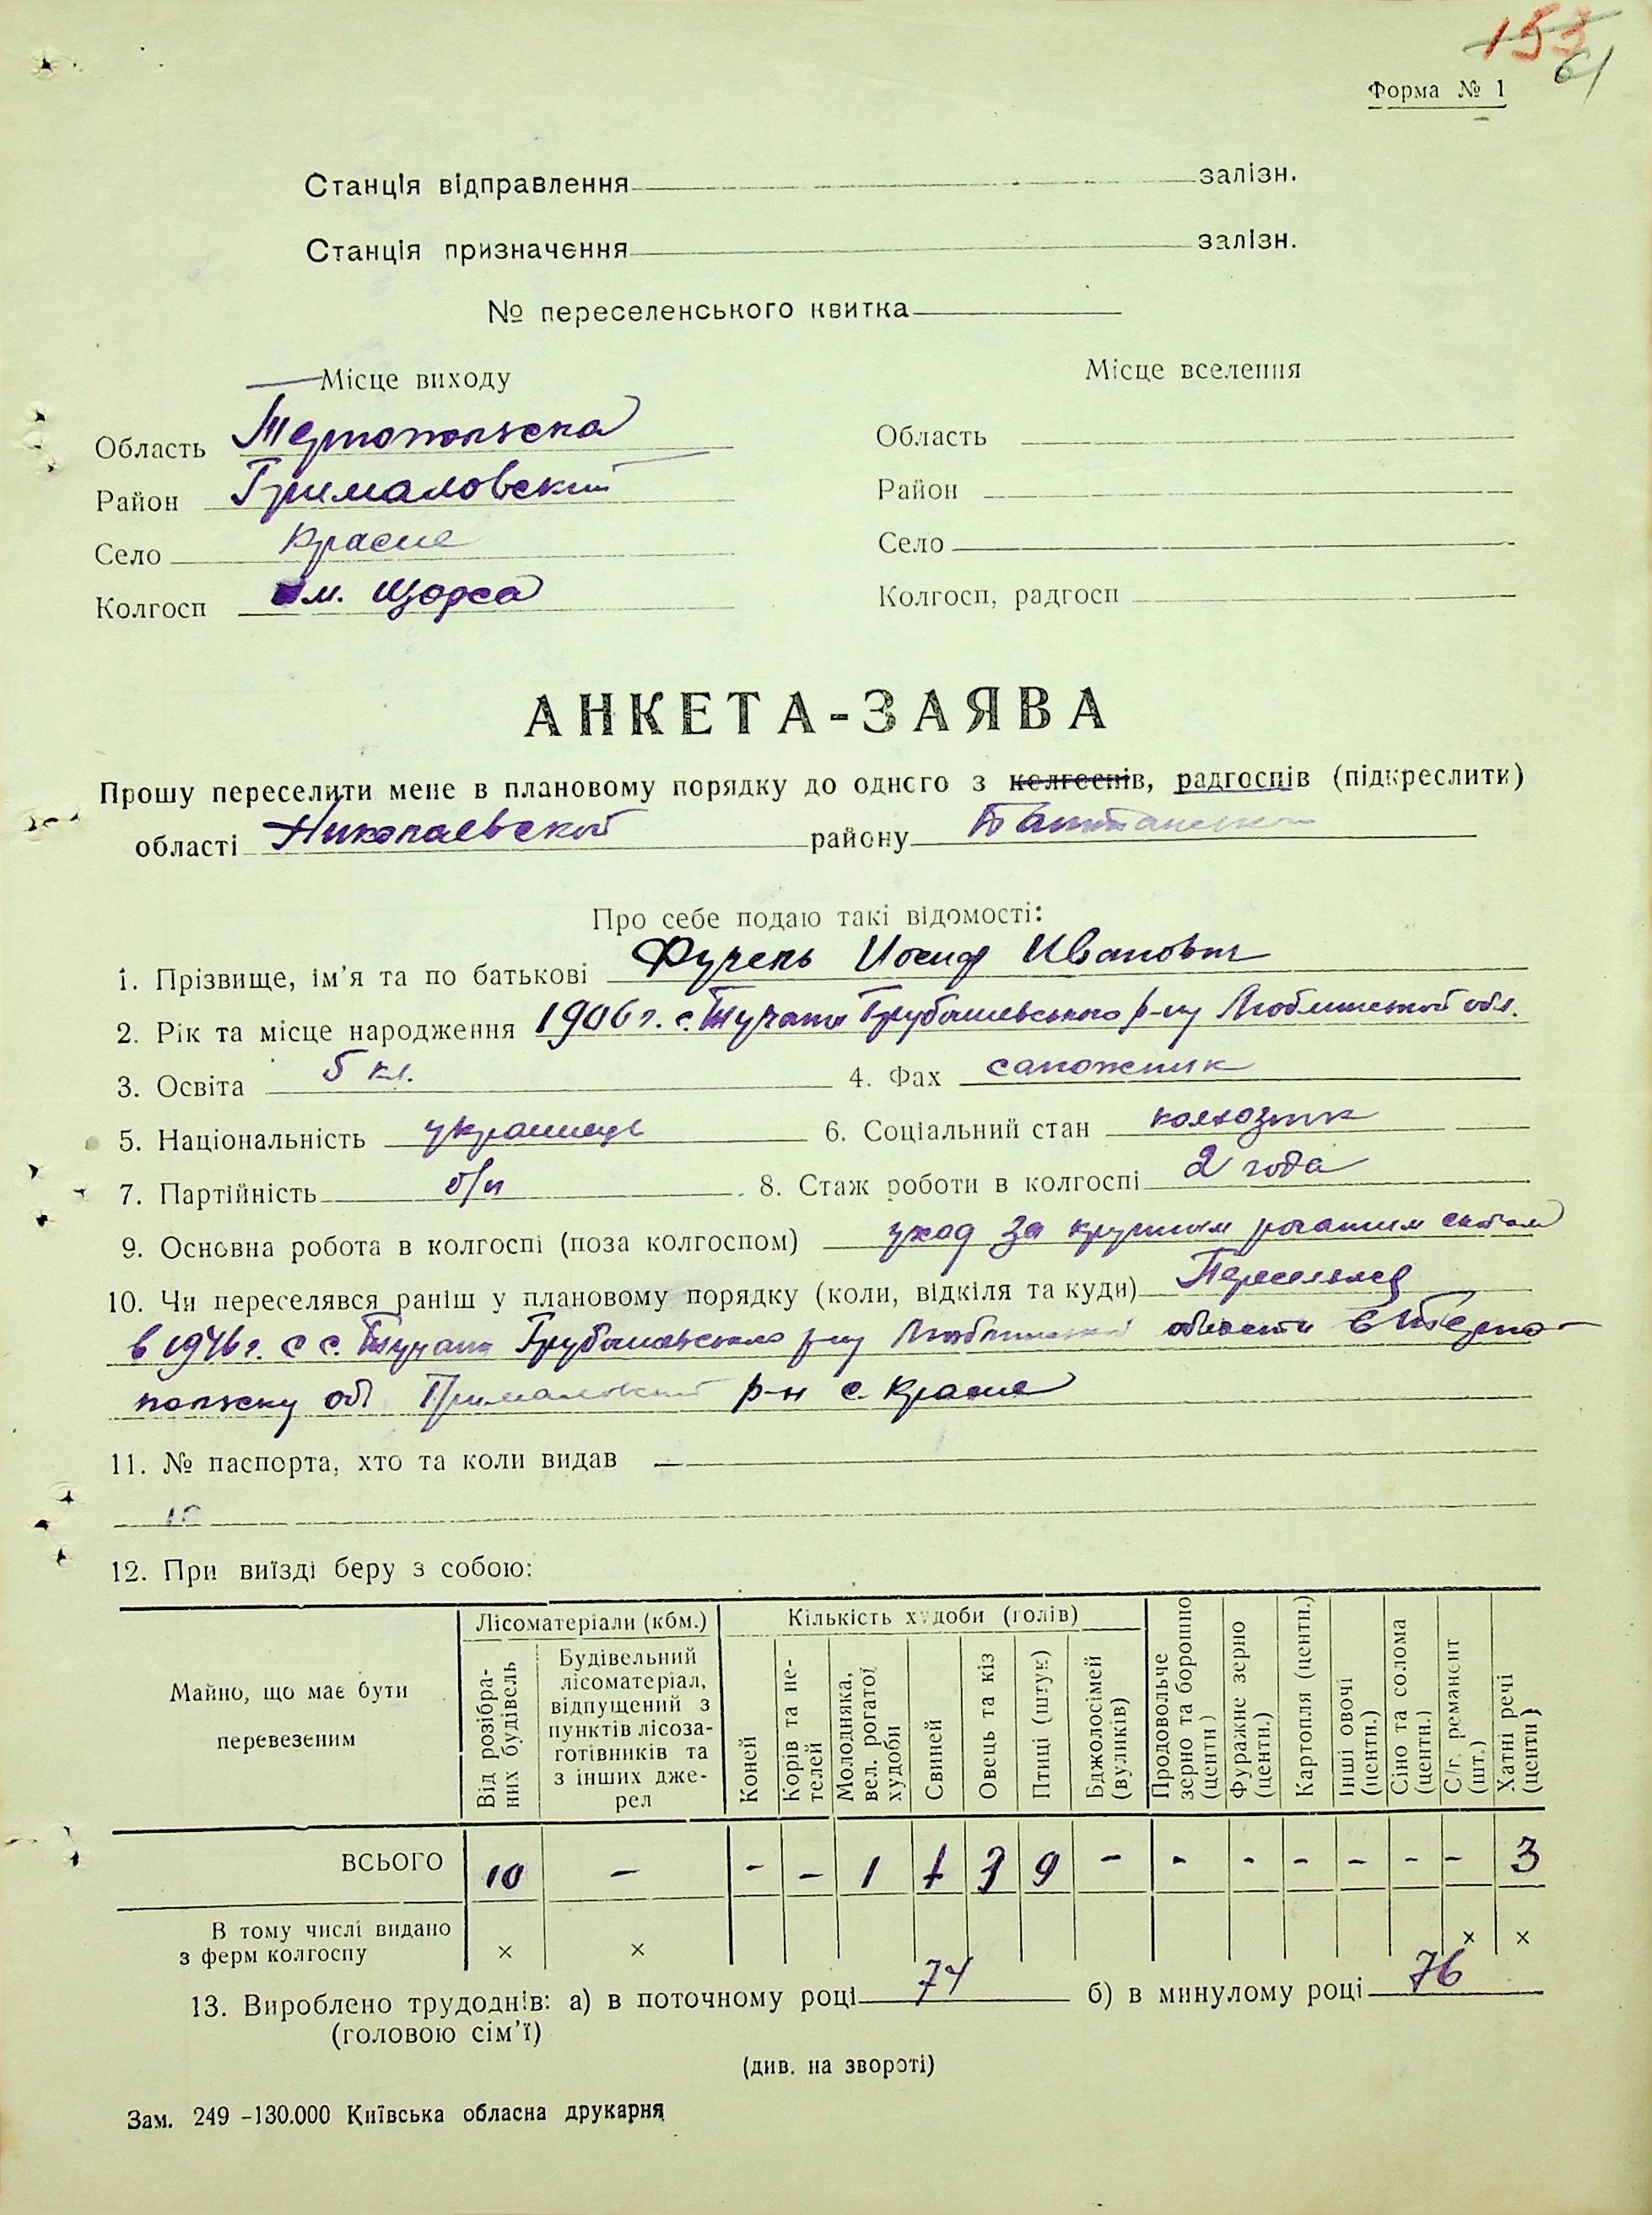 153
61
Форма № 1
Станція відправлення залізн.
Станція призначення залізн.
№ переселенського квитка
Місце виходу
Місце вселення
Область Тернопольска
Область
Район Грималовский
Район
Село Красне
Село
Колгосп им. Щорса
Колгосп, радгосп
АНКЕТА-ЗАЯВА
Прошу переселити мене в плановому порядку до одного з колгоспів, радгоспів (підкреслити)
області Николаевской району Баштанский
Про себе подаю такі відомості:
1. Прізвище, ім'я та по батькові Фучень Иосиф Иванович
2. Рік та місце народження 1906 г. с. Тучапи Грубешевського р-ну Люблинской обл.
3. Освіта 5 кл. 4. Фах сапожник
5. Національність украинець 6. Соціальний стан колхозник
7. Партійність б/п 8. Стаж роботи в колгоспі 2 года
9. Основна робота в колгоспі (поза колгоспом) уход за крупним рогатим скотом
10. Чи переселявся раніш у плановому порядку (коли, відкіля та куди) Переселился
в 1946 г. с с. Тучапи Грубешевського р-ну Люблинской области в Терно-
польску обл Грималовский р-н с. Красне
11. № паспорта, хто та коли видав
12. При виїзді беру з собою:
Майно, що має бути перевезеним
Лісоматеріали (кбм.)
Кількість худоби (голів)
Від розібраних будівель
Будівельний лісоматеріал, відпущений з пунктів лісозаготівників та з інших джерел
Коней
Корів та нетелей
Молодняка, вел. рогатої худоби
Свиней
Овець та кіз
Птиці (штук)
Бджолосімей (вуликів)
Продовольче зерно та борошно (центн)
Фуражне зерно (центн.)
Картопля (центн.)
Інші овочі (центн.)
Сіно та солома (центн.)
С/г. реманент (шт.)
Хатні речі (центн)
ВСЬОГО 10 – - - 1 1 3 9 - - - - - - - 3
В тому числі видано
з ферм колгоспу × × × ×
13. Вироблено трудоднів: а) в поточному році 74 б) в минулому році 76
(головою сім'ї)
(див. на звороті)
Зам. 249 -130.000 Київська обласна друкарня